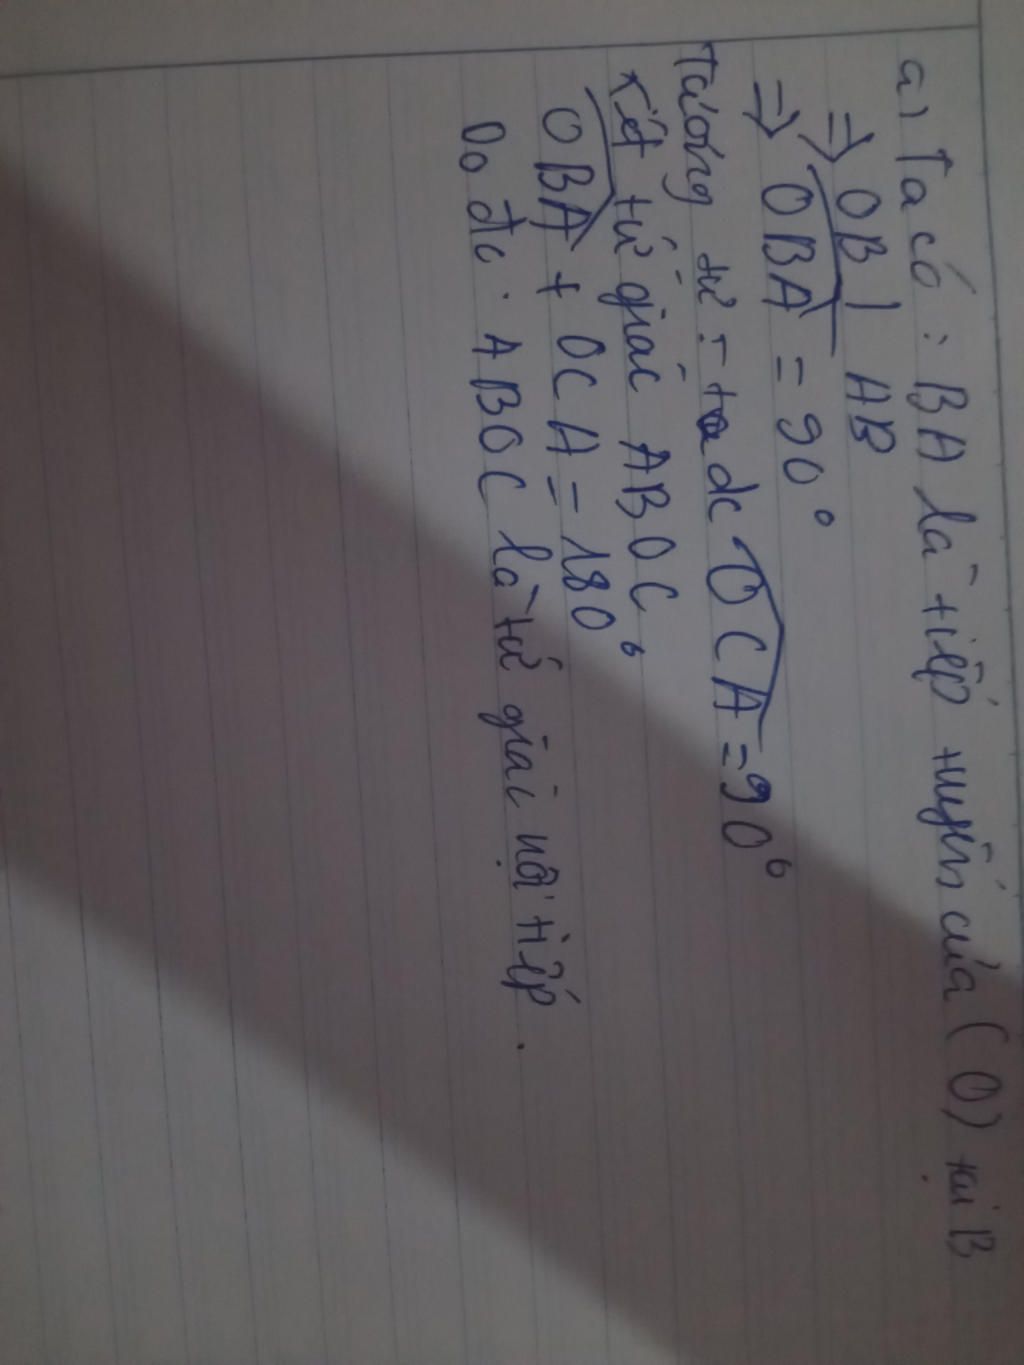 a) Ta có : BA là tiếp tuyến của (O) tại B
=> OB ⊥ AB
=> OBA = 90°
Tương tự : ta dc OCA = 90°
Xét tứ giác ABOC
OBA + OCA = 180°
Do đc . ABOC là tứ giác nội tiếp .